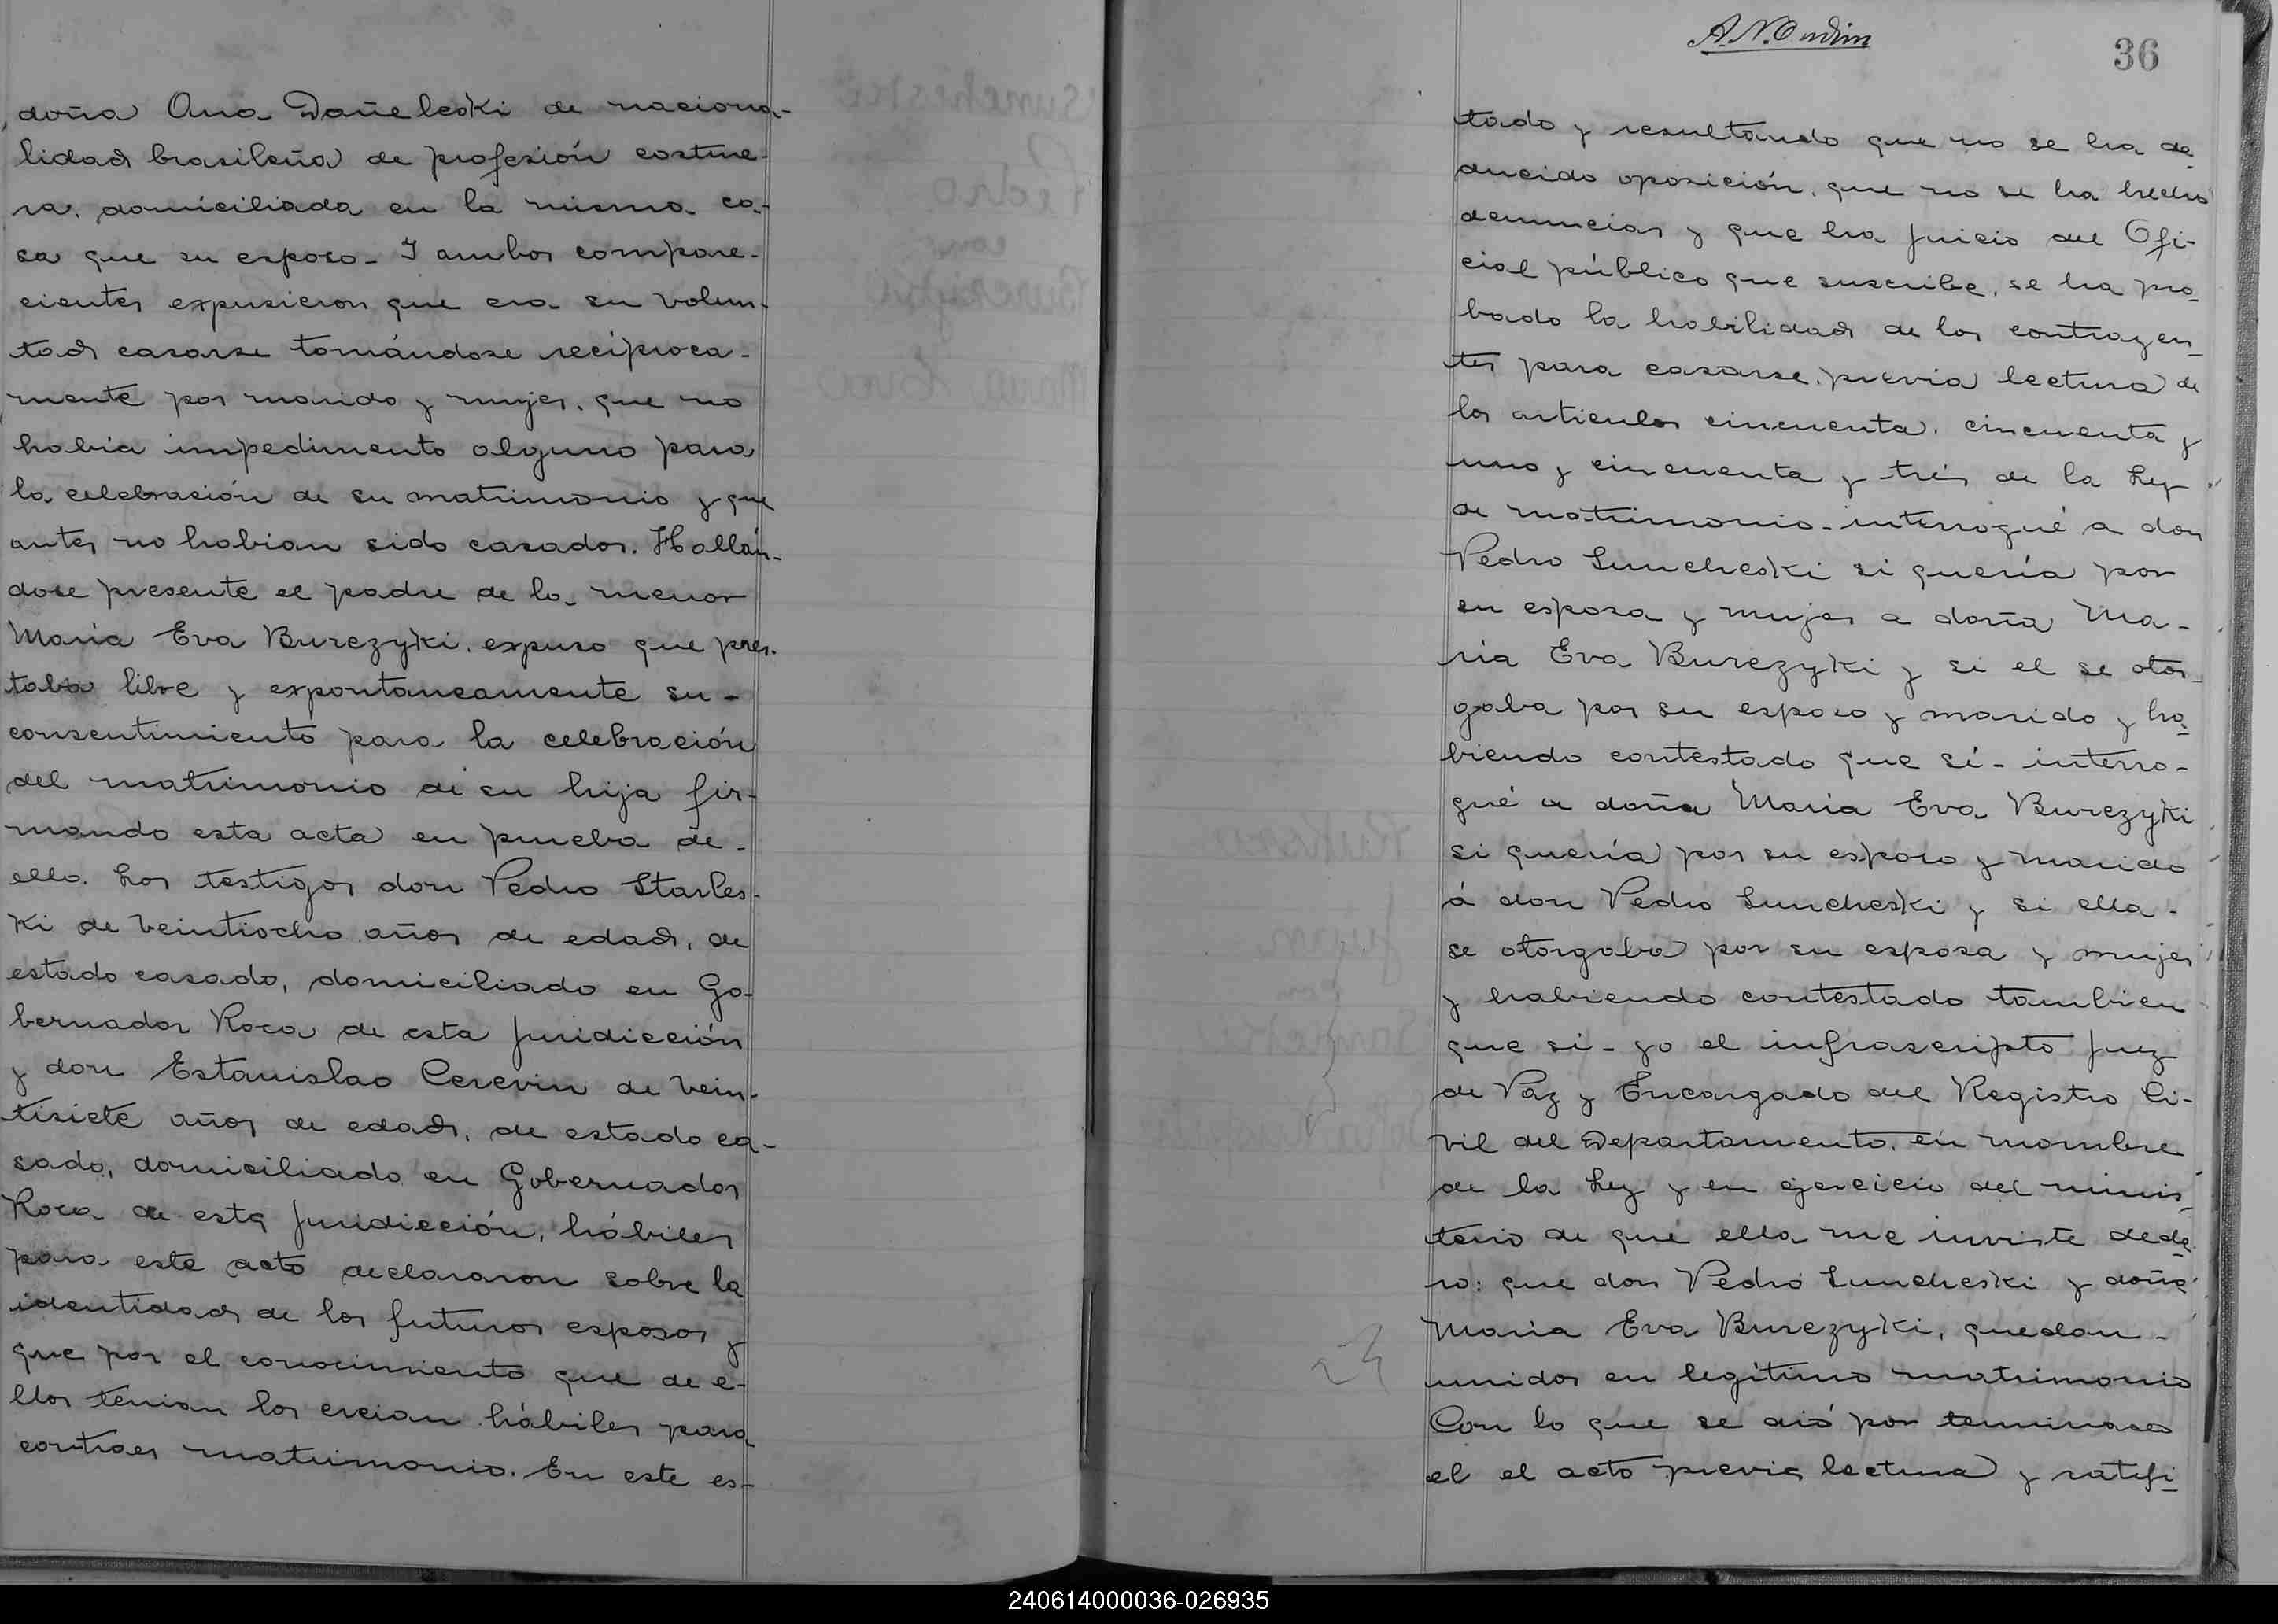 doña Ana Dañeleski de naciona-
lidad brasileña de profesión costure-
ra, domiciliada en la misma ca-
sa que su esposo - I ambos compare-
cientes expusieron que era su volun-
tad casarse tomándose recíproca-
mente por marido y mujer, que no
había impedimento alguno para
la celebración de su matrimonio y que
antes no habian sido casados. Hallán-
dose presente el padre de la menor
María Eva Burczyki, expuso que pres-
taba libre y expontaneamente su -
consentimiento para la celebración
del matrimonio de su hija fir-
mando esta acta en prueba de -
ello. Los testigos don Pedro Starles-
ki de veintiocho años de edad, de
estado casado, domiciliado en Go-
bernador Roca de esta juridicción
y don Estanislao Cerevin de vein-
tisiete años de edad, de estado ca-
sado, domiciliado en Gobernador
Roca de esta juridicción, hábiles
para este acto declararon sobre la
identidad de los futuros esposos y
que por el conocimiento que de e-
llos tenian los creian hábiles para
contraer matrimonio. En este es-
36
tado y resultando que no se ha de-
ducido oposición, que no se ha hecho
denuncias y que ha juicio del Ofi-
cial público que suscribe, se ha pro-
bado la habilidad de los contrayen-
tes para casarse, previa lectura de
los articulos cincuenta, cincuenta y
uno y cincuenta y trés de la Ley
de matrimonio - interrogué a don
Pedro Suncheski si quería por
su esposa y mujer a doña Ma-
ria Eva Burczyki y si el se otor-
gaba por su esposo y marido y ha-
biendo contestado que sí - interro-
gué a doña Maria Eva Burczyki
si quería por su esposo y marido
á don Pedro Suncheski y si ella -
se otorgaba por su esposa y mujer
y habiendo contestado tambien
que si - yo el infrascripto Juez
de Paz y Encargado del Registro Ci-
vil del Departamento, en nombre
de la Ley y en ejercicio del minis-
terio de qué ella me inviste decla-
ro: que don Pedro Suncheski y doña
Maria Eva Burczyki, quedan -
unidos en legítimo matrimonio
Con lo que se dió por terminado
el el acto previa lectura y ratifi-
240614000036-026935